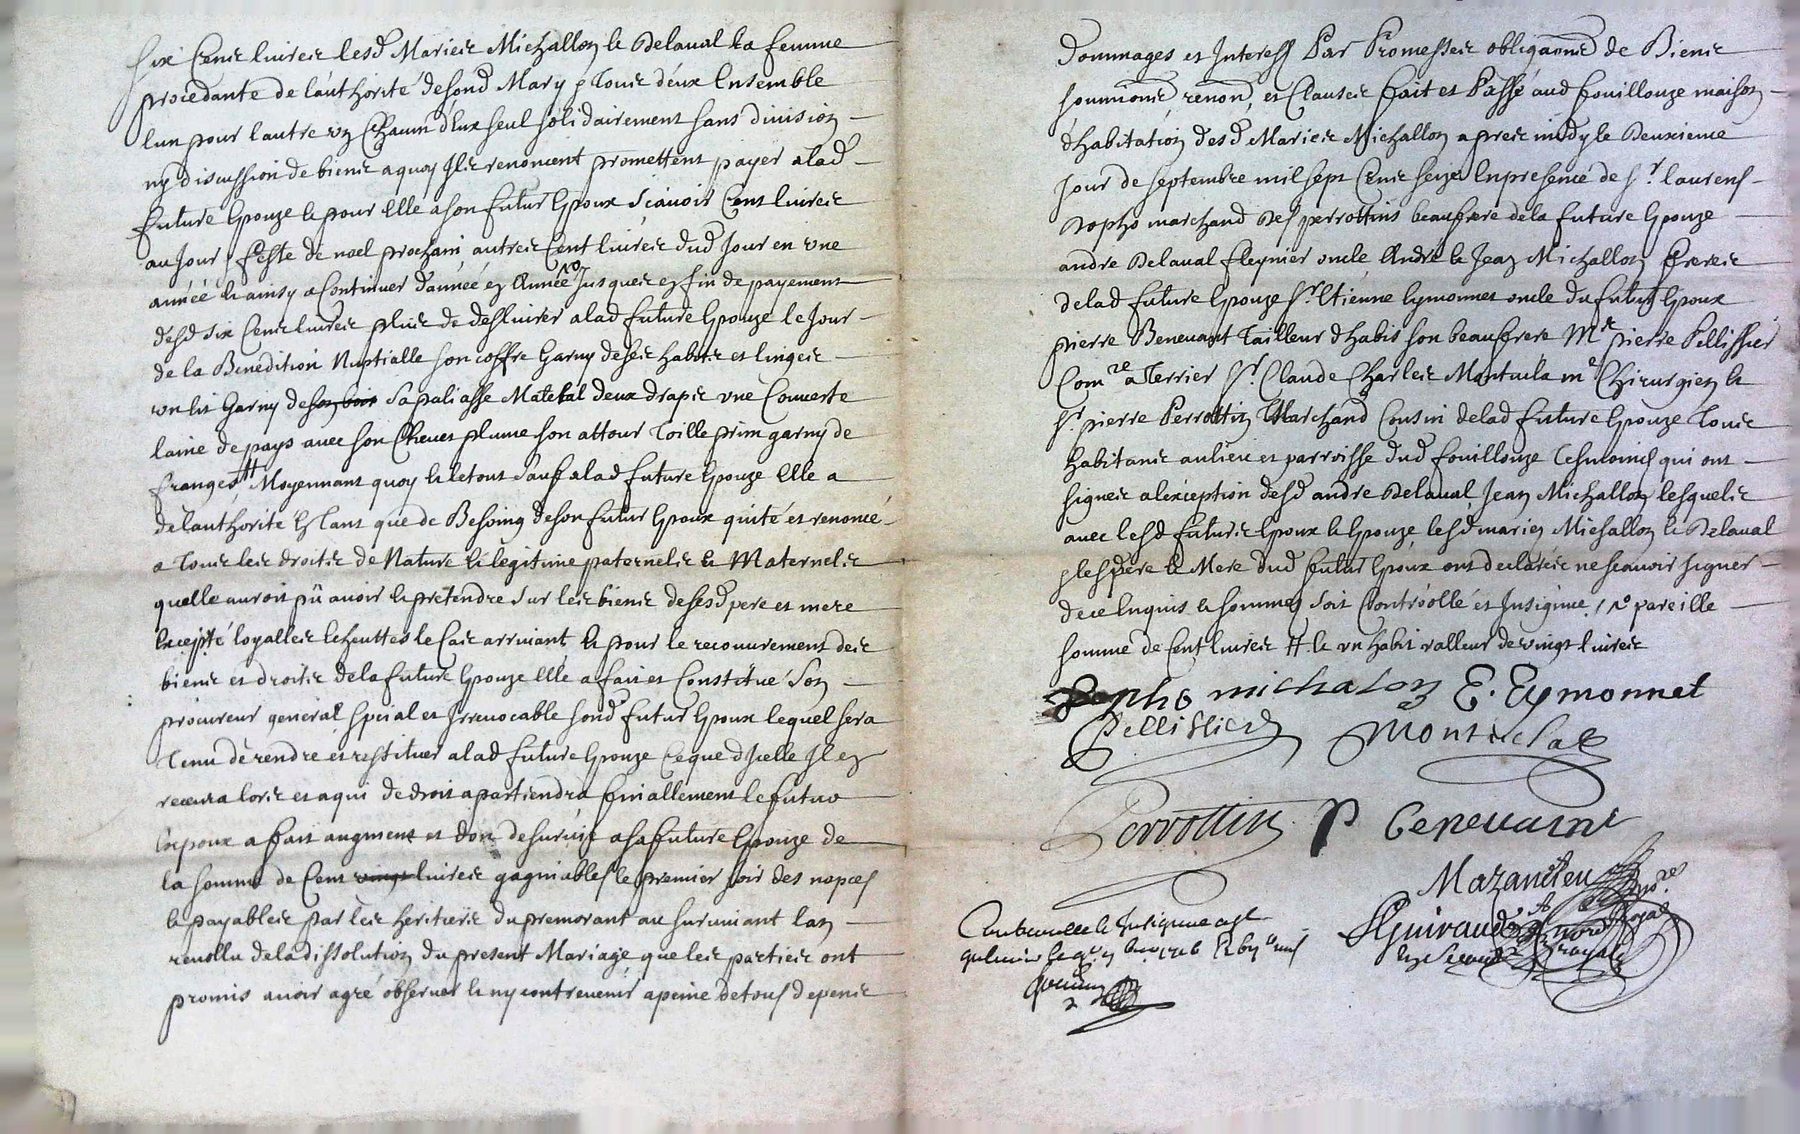 six Cens livres lesd Mariés Michallon & Delaval sa femme
procedante de l'authorité desond Mary p Tous deux Ensemble
lun pour lautre un Chacun d'Eux seul solidairement sans division
ny discussion de biens a quoy Ils renoncent promettent payer alad
future Epouze & pour Elle a son futur Epoux sçavoir Cent livres
au Jour & feste de noel prochain autres Cent livres dud Jour en une
année & ainsy a Continuer d'année en Année No Jusques en fin de payement
desd six Cens livres plus de deslivrer alad future Epouze le Jour
de la Benediction Nuptialle son coffre Garny de ses habits et linges
un lit Garny de son bois sa paliasse Matelal deux draps une Couverte
laine de pays avec son Chevet plume son attour Toille prim garny de
franges # Moyennant quoy & le tout sauf alad future Epouze Elle a
de l'authorité En Tant que de Besoing de son futur Epoux quité et renoncé
a Tous les droits de Nature & legitime paternels & Maternels
quelle auroit pû avoir & pretendre sur les biens de sesd pere et mere
Excepté loyalle escheuttes le Cas arrivant & pour le recouvrement des
biens et droits de la future Epouze Elle a fait et Constitué son
procureur general special et Irrevocable sond futur Epoux lequel sera
Tenu de rendre et restituer alad future Epouze Ce que d'Icelle Il en
recevra lors et a qui de droit apartiendra finiallement le futur
Expoux a fait augment et don de survie a sa future Epouze de
la somme de Cent vingt livres gagniables le premier soir des nopces
& payables par les heritiers du premorant au survivant lan
revollu de la dissolution du present Mariage que les parties ont
promis avoir agré observer & ny contrevenir a peine de tous depens
Dommages et Interest Par Promesses obligaōns de Biens
soumiōns renonō, et Clauses fait et Passé aud fouillouze maison
d'habitation desd Mariés Michallon apres midy le Deuxieme
Jour de septembre mil sept Cens seize En presence de Sr. laurens
Dopho marchand des perrottins beaufrere de la future Epouze
andre Delaval fleynier oncle André & Jean Michallon freres
delad future Epouze Sr. Etienne Eymonnet oncle du futur Epoux
pierre Benevant Tailleur d'habis son beaufrere Mr pierre Pellissier
Comre a Terrier Sr. Claude Charles Montucla me Chirurgien &
Sr. pierre Perrottin Marchand Cousin delad future Epouze Tous
habitans aulieu et parroisse dud fouillouze Tesmoins qui ont
signés alexception desd andre Delaval Jean Michallon lesquels
avec lesd futurs Epoux & Epouze lesd mariés Michallon & Delaval
& les pere & Mere dud futur Epoux ont declarés ne scavoir signer
de ce Enquis & sommés soit Controollé et Insigné / No pareille
somme de Cent livres # & un habit valleur de vingt livres
Dopho michalon E. Eymonnet
Pellissier Montucla
Perrottin P benevaint
Mazandieu nores
SGuiraud nore royal
Controollé & Insigné